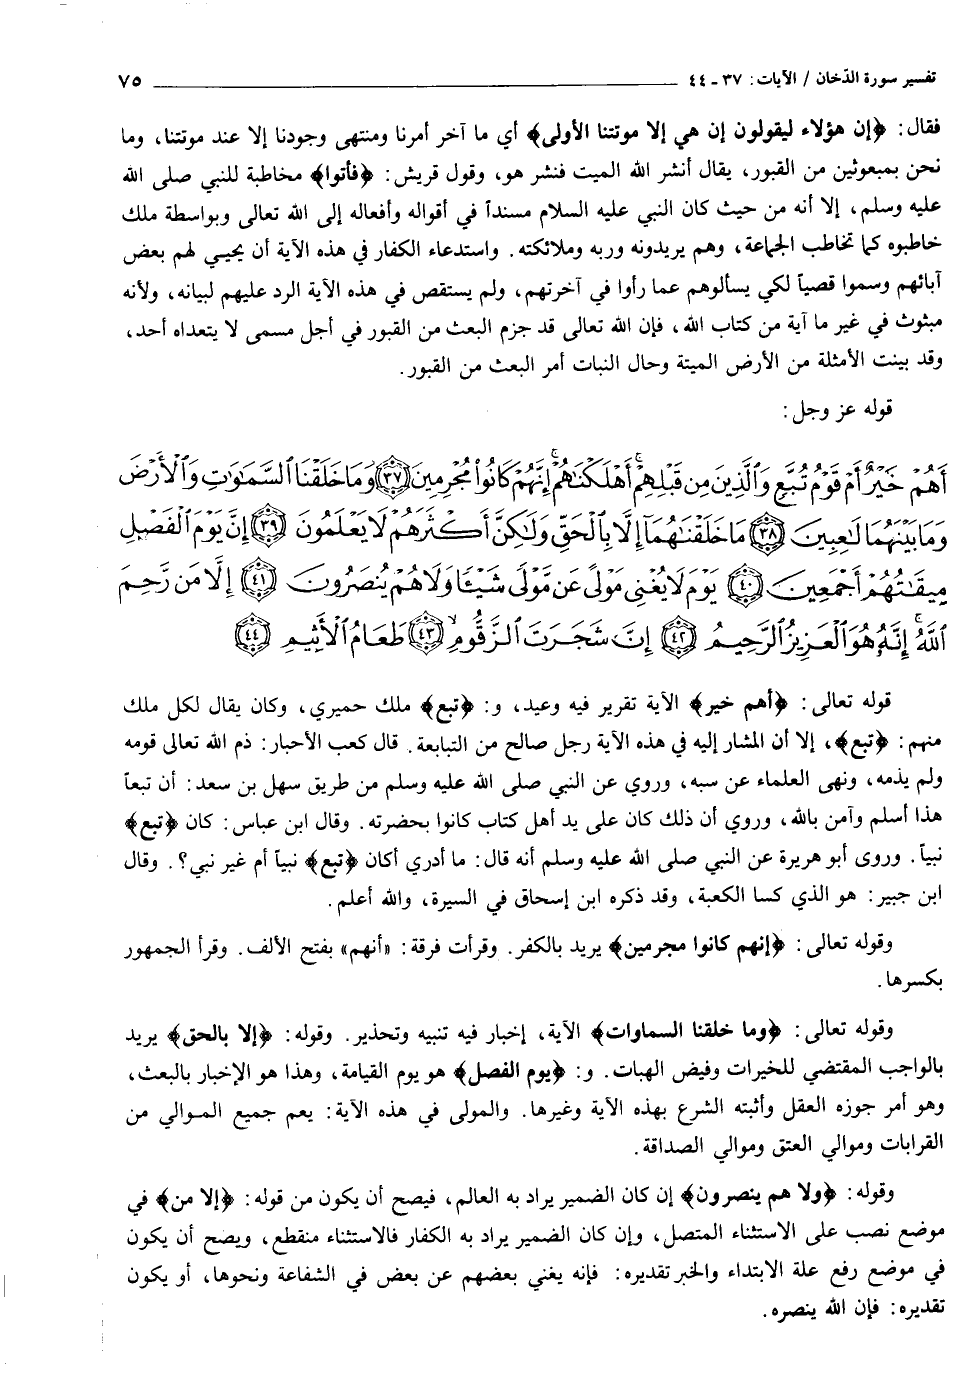 تفسير سورة الدّخان / الآيات: ٣٧ ـ ٤٤ ٧٥
فقال: ﴿إن هؤلاء ليقولون إن هي إلا موتتنا الأولى﴾ أي ما آخر أمرنا ومنتهى وجودنا إلا عند موتتنا، وما
نحن بمبعوثين من القبور، يقال أنشر الله الميت فنشر هو، وقول قريش: ﴿فأتوا﴾ مخاطبة للنبي صلى الله
عليه وسلم، إلا أنه من حيث كان النبي عليه السلام مسنداً في أقواله وأفعاله إلى الله تعالى وبواسطة ملك
خاطبوه كما تخاطب الجماعة، وهم يريدونه وربه وملائكته. واستدعاء الكفار في هذه الآية أن يحيـي لهم بعض
آبائهم وسموا قصياً لكي يسألوهم عما رأوا في آخرتهم، ولم يستقص في هذه الآية الرد عليهم لبيانه، ولأنه
مبثوث في غير ما آية من كتاب الله، فإن الله تعالى قد جزم البعث من القبور في أجل مسمى لا يتعداه أحد،
وقد بينت الأمثلة من الأرض الميتة وحال النبات أمر البعث من القبور.
قوله عز وجل:
أَهُمْ خَيْرٌ أَمْ قَوْمُ تُبَّعٍ وَالَّذِينَ مِن قَبْلِهِمْ أَهْلَكْنَاهُمْ إِنَّهُمْ كَانُوا مُجْرِمِينَ ﴿٣٧﴾ وَمَا خَلَقْنَا السَّمَاوَاتِ وَالْأَرْضَ
وَمَا بَيْنَهُمَا لَاعِبِينَ ﴿٣٨﴾ مَا خَلَقْنَاهُمَا إِلَّا بِالْحَقِّ وَلَكِنَّ أَكْثَرَهُمْ لَا يَعْلَمُونَ ﴿٣٩﴾ إِنَّ يَوْمَ الْفَصْلِ
مِيقَاتُهُمْ أَجْمَعِينَ ﴿٤٠﴾ يَوْمَ لَا يُغْنِي مَوْلًى عَن مَّوْلًى شَيْئًا وَلَا هُمْ يُنصَرُونَ ﴿٤١﴾ إِلَّا مَن رَّحِمَ
اللَّهُ إِنَّهُ هُوَ الْعَزِيزُ الرَّحِيمُ ﴿٤٢﴾ إِنَّ شَجَرَتَ الزَّقُّومِ ﴿٤٣﴾ طَعَامُ الْأَثِيمِ ﴿٤٤﴾
قوله تعالى: ﴿أهم خير﴾ الآية تقرير فيه وعيد، و: ﴿تبع﴾ ملك حميري، وكان يقال لكل ملك
منهم: ﴿تبع﴾، إلا أن المشار إليه في هذه الآية رجل صالح من التبابعة. قال كعب الأحبار: ذم الله تعالى قومه
ولم يذمه، ونهى العلماء عن سبه، وروي عن النبي صلى الله عليه وسلم من طريق سهل بن سعد: أن تبعاً
هذا أسلم وآمن بالله، وروي أن ذلك كان على يد أهل كتاب كانوا بحضرته. وقال ابن عباس: كان ﴿تبع﴾
نبياً. وروى أبو هريرة عن النبي صلى الله عليه وسلم أنه قال: ما أدري أكان ﴿تبع﴾ نبياً أم غير نبي؟. وقال
ابن جبير: هو الذي كسا الكعبة، وقد ذكره ابن إسحاق في السيرة، والله أعلم.
وقوله تعالى: ﴿إنهم كانوا مجرمين﴾ يريد بالكفر. وقرأت فرقة: «أنهم» بفتح الألف. وقرأ الجمهور
بكسرها.
وقوله تعالى: ﴿وما خلقنا السماوات﴾ الآية، إخبار فيه تنبيه وتحذير. وقوله: ﴿إلا بالحق﴾ يريد
بالواجب المقتضي للخيرات وفيض الهبات. و: ﴿يوم الفصل﴾ هو يوم القيامة، وهذا هو الإخبار بالبعث،
وهو أمر جوزه العقل وأثبته الشرع بهذه الآية وغيرها. والمولى في هذه الآية: يعم جميع المـوالي من
القرابات وموالي العتق وموالي الصداقة.
وقوله: ﴿ولا هم ينصرون﴾ إن كان الضمير يراد به العالم، فيصح أن يكون من قوله: ﴿إلا من﴾ في
موضع نصب على الاستثناء المتصل، وإن كان الضمير يراد به الكفار فالاستثناء منقطع، ويصح أن يكون
في موضع رفع علة الابتداء والخبر تقديره: فإنه يغني بعضهم عن بعض في الشفاعة ونحوها، أو يكون
تقديره: فإن الله ينصره.